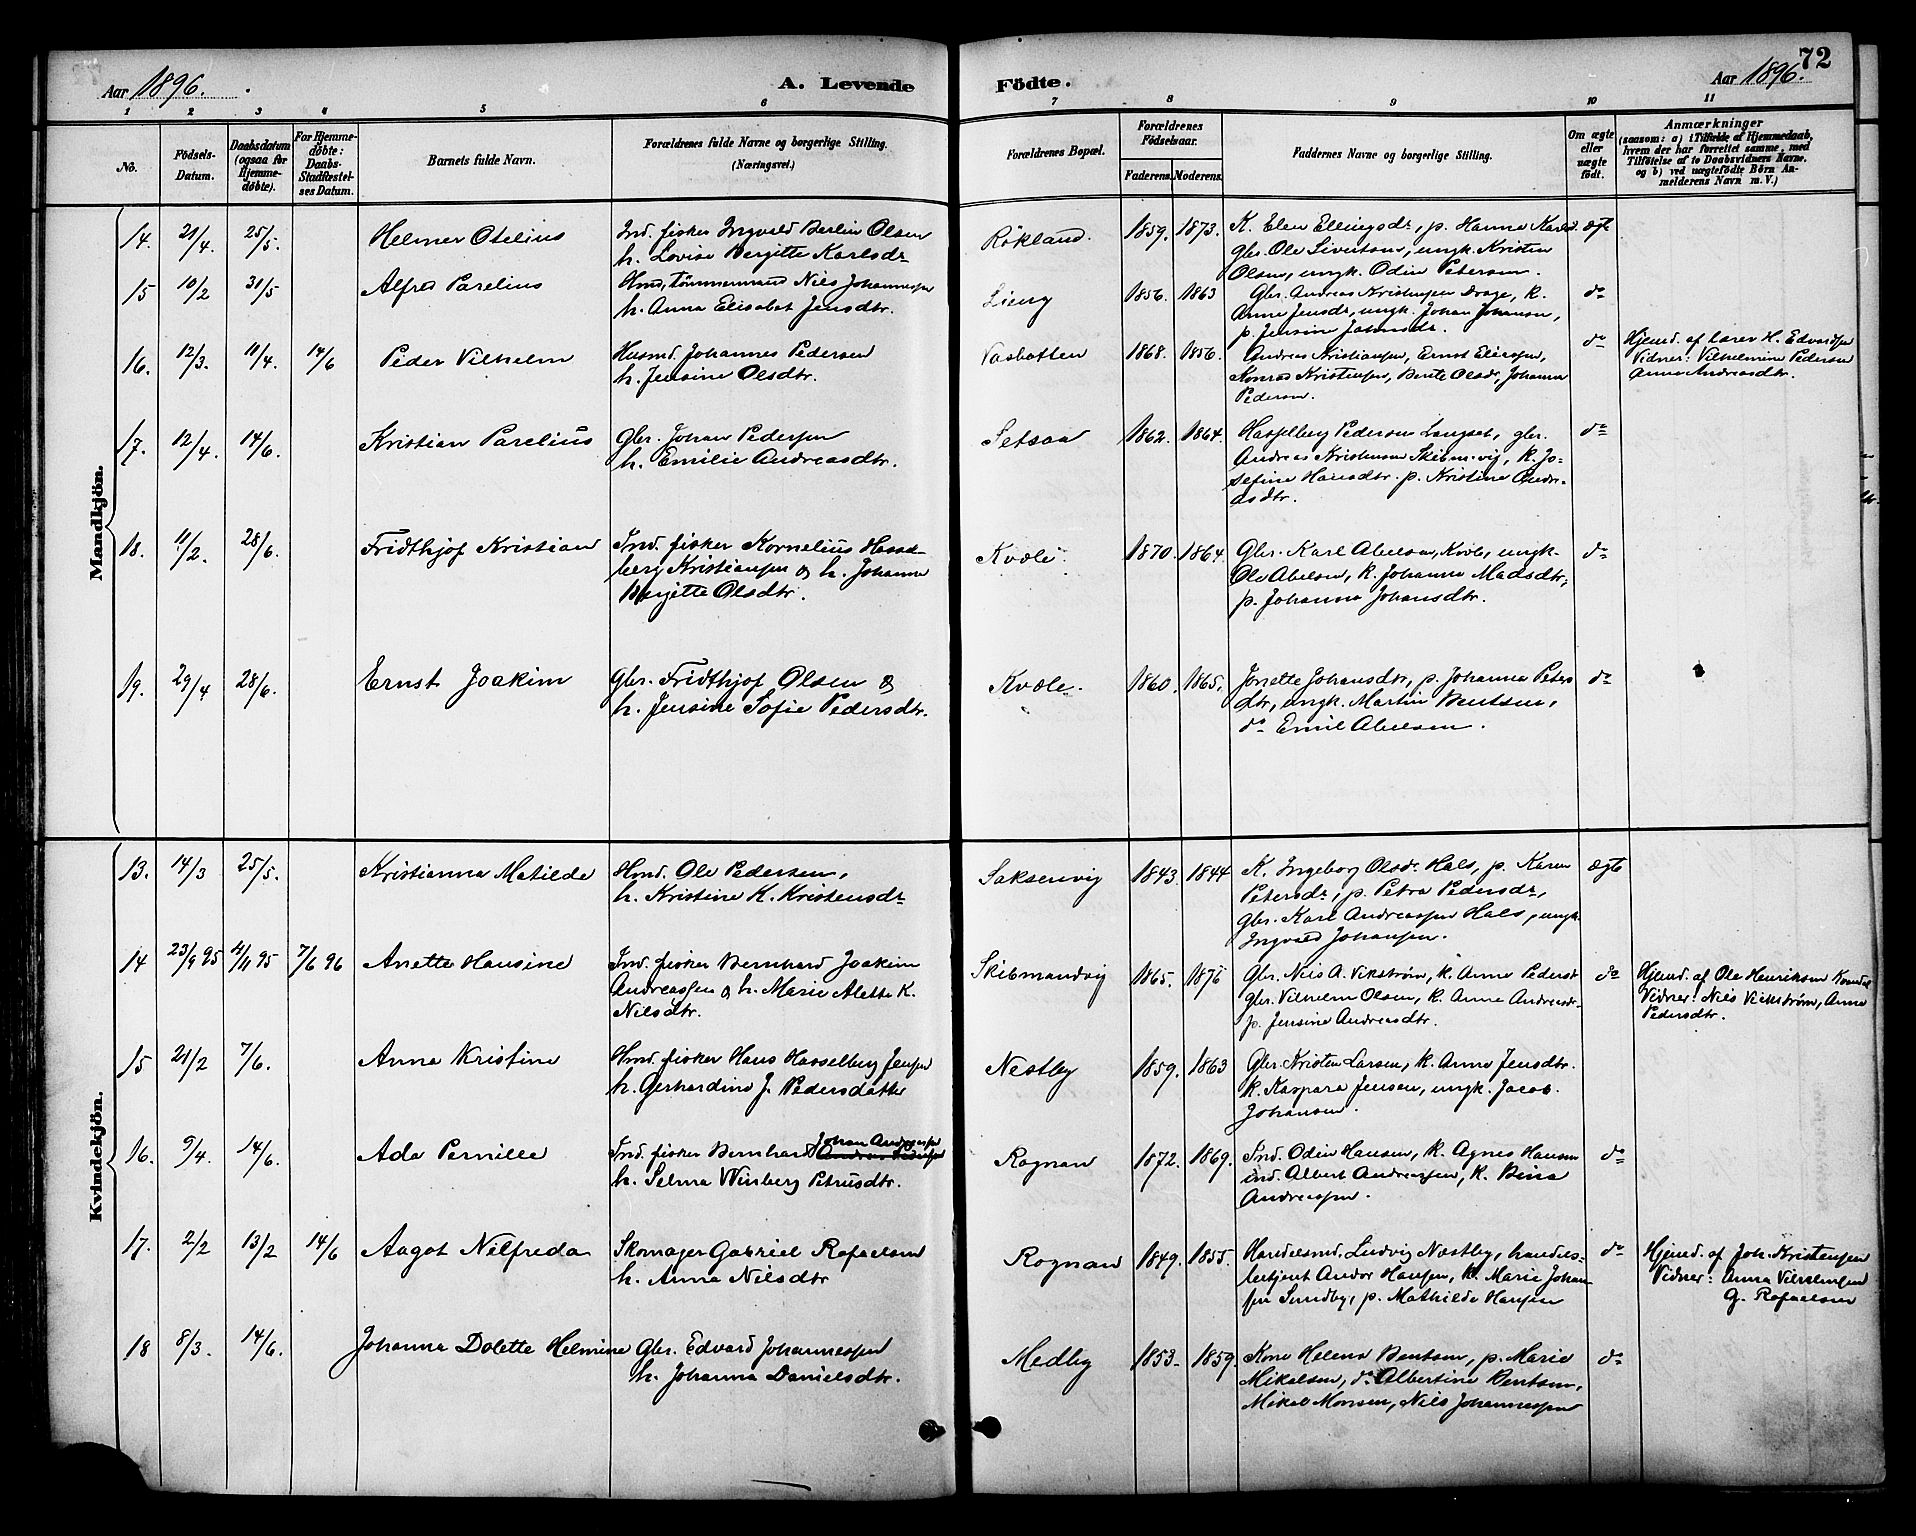 72
Aar 1896. A. Levende Födte. Aar 1896.
1 2 3 4 5 6 7 8 9 10 11
No.
Födsels-
Datum.
Daabsdatum
(ogsaa for
Hjemme-
døbte).
For Hjemme-
døbte:
Daabs-
Stadfæstel-
ses Datum.
Barnets fulde Navn.
Forældrenes fulde Navne og borgerlige Stilling.
(Næringsvei.)
Forældrenes Bopæl.
Forældrenes
Födselsaar.
Faderens. Moderens.
Faddernes Navne og borgerlige Stilling.
Om ægte
eller
uægte
födt.
Anmærkninger
(saasom: a) i Tilfælde af Hjemmedaab,
hvem der har forrettet samme, med
Tilföielse af to Daabsvidners Navne,
og b) ved uægtefödte Börn An-
melderens Navn m. V.)
Mandkjön.
14. 21/4. 25/5. Helmer Otelius
Ind. fisker Ingvald Berlin Olsen
h. Lovise Bergitte Karlsdr
Rökland. 1859. 1873.
K. Elen Ellingsdr, p. Hanna Karlsd.
gbr. Ole Sivertsen, ungk. Kristen
Olsen, ungk. Odin Petersen.
ægt
15 10/2 31/5 Alfred Parelius
Hmd, tömmermand Nils Johannesen
h. Anna Elisabet Jensdtr.
Lieng 1856. 1863
Gbr. Andreas Kristensen Drage, K.
Anne Jensdr, ungk. Johan Johansen,
p. Jensine Johnsdr.
do
16. 12/3. 11/4. 14/6 Peder Vilhelm
Husmd. Johannes Pedersen
h. Jensine Olsdtr.
Vasbotten 1868. 1856.
Andreas Kristiansen, Ernst Eliesen,
Konrad Kristensen, Bente Olsdr, Johanna
Pedersen.
do
Hjemd. af Lærer H. Edvardsen
Vidner: Vilhelmine Pedersen
Anna Andreasdtr.
17. 12/4. 14/6. Kristian Parelius
Gbr. Johan Pedersen
h. Emilie Andreasdtr.
Setsaa 1862. 1864.
Hasselberg Pedersen Langset, gbr.
Andreas Kristensen Skibmvig, K. Jo-
sefine Hansdtr. p. Kristine Andre-
asdtr.
do
18. 11/2. 28/6. Fridthjof Kristian
Ind. fisker Kornelius Hassel-
berg Kristiansen & h. Johanna
Bergitte Olsdtr.
Kvæle 1870. 1864.
Gbr. Karl Abelsen, Kvæle, ungk.
Ole Abelsen, K. Johanna Madsdtr,
p. Johanna Johansdtr.
do
19. 29/4 28/6. Ernst Joakim
Gbr. Fridthjof Olsen &
h. Jensine Sofie Pedersdtr.
Kvæle. 1860. 1865.
Jonette Johansdtr, p. Johanna Peters
dtr, ungk. Martin Bentsen,
do Emil Abelsen.
do
Kvindekjön.
13. 14/3 25/5. Kristianna Matilde
Hmd. Ole Pedersen,
h. Kristine K. Kristensdr
Saksenvig 1843. 1844
K. Ingeborg Olsdr Hals, p. Karen
Petersdr, p. Petra Pedersdr,
Gbr. Karl Andreassen Hals, ungk.
Ingvald Johansen.
ægte
14 23/9 95 4/11 95 7/6 96 Anette Hansine
Ind. fisker Bernhard Joakim
Andreassen & h. Marie Alette K.
Nilsdtr.
Skibmandvig 1865. 1876
Gbr. Nils A. Vikström, K. Anne Pedersd
gbr. Vilhelm Olsen, K. Anne Andreasdr
p. Jensine Andreasdtr.
do
Hjemd. af Ole Henriksen
Vidner: Nils Vickström, Anne
Pedersdtr.
15 21/2 7/6. Anna Kristine
Hmd. fisker Hans Hasselberg Jensen
h. Gerhardine J. Pedersdatter
Nestby 1859. 1863
Gbr. Kristen Larsen, K. Anne Jensdtr.
K. Kaspara Jensen, ungk. Jacob
Johansen.
16. 9/4. 14/6. Ada Pernille
Ind. fisker Bernhard Johan Andreassen
h. Selma Winberg Petrusdtr.
Rognan 1872. 1869.
Ind. Odin Hansen, K. Agnes Hansen
ind. Albert Andreassen, K. Bina
Andreassen.
do
17. 2/2 13/2 14/6 Aagot Nilfreda
Skomager Gabriel Rafaelsen
h. Anna Nilsdtr
Rognan 1849. 1855.
Handelsmd. Ludvig Næstby, handels-
betjent Andor Hansen, K. Marie Johan-
sen Sundby, p. Mathilde Hansen
do
Hjemd. af Joh. Kristensen
Vidner: Anna Vilhelmsen
G. Rafaelsen
18 8/3. 14/6. Johanna Dolette Helmine
Gbr. Edvard Johannessen
h. Johanna Danielsdtr.
Medby 1853. 1859.
Kone Helena Bentsen, p. Marie
Mikalsen, do Albertine Bentsen,
Mikal Monsen, Nils Johannessen
do